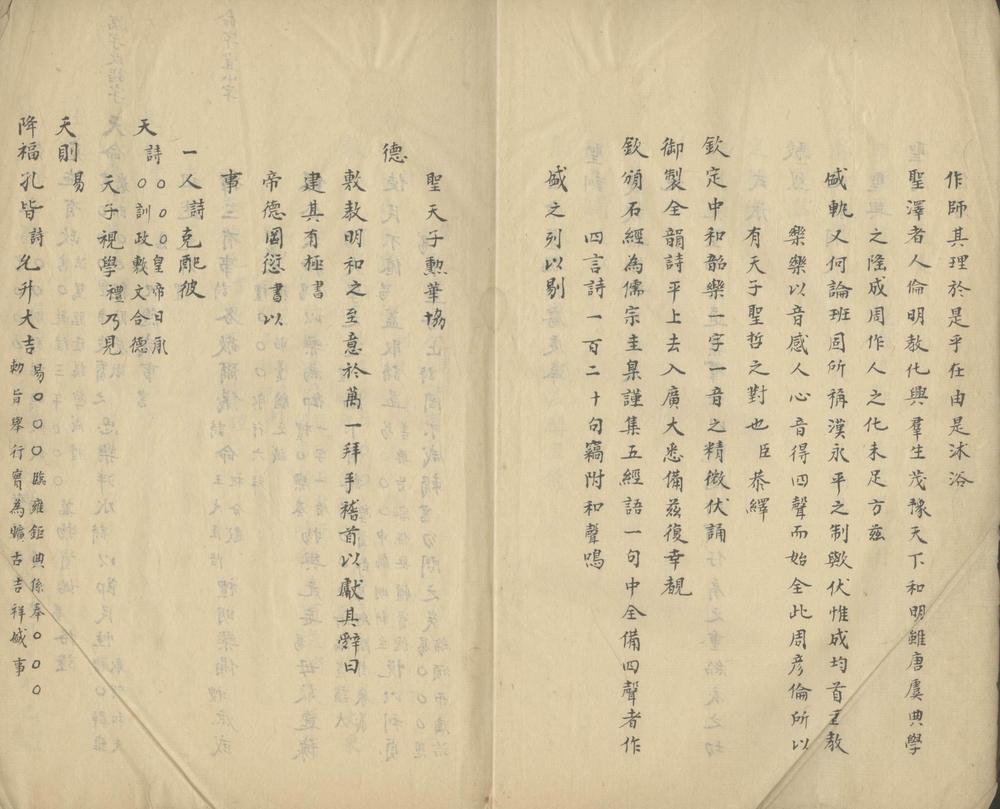 作師其理於是乎在由是沐浴
聖澤者人倫明教化興羣生茂豫天下和明雖唐虞典學
之隆成周作人之化未足方茲
盛軌又何論班固所稱漢永平之制歟伏惟成均首重教
樂樂以音感人心音得四聲而始全此周彥倫所以
有天子聖哲之對也臣恭繹
欽定中和韶樂一字一音之精微伏誦
御製全韻詩平上去入廣大悉備茲復幸覩
欽頒石經為儒宗圭臬謹集五經語一句中全備四聲者作
四言詩一百二十句竊附和聲鳴
盛之列以剔
聖天子勳華協
德
敷教明和之至意於萬一拜手稽首以獻其辭曰
建其有極書
帝德罔愆書以
事
一人詩克配彼
天詩○○○皇帝曰承
○○訓政敷文合德
天子視學禮乃見
天則易
降福孔皆詩允升大吉易○○○臨雍鉅典係奉○○○
勅旨舉行實為曠古吉祥盛事